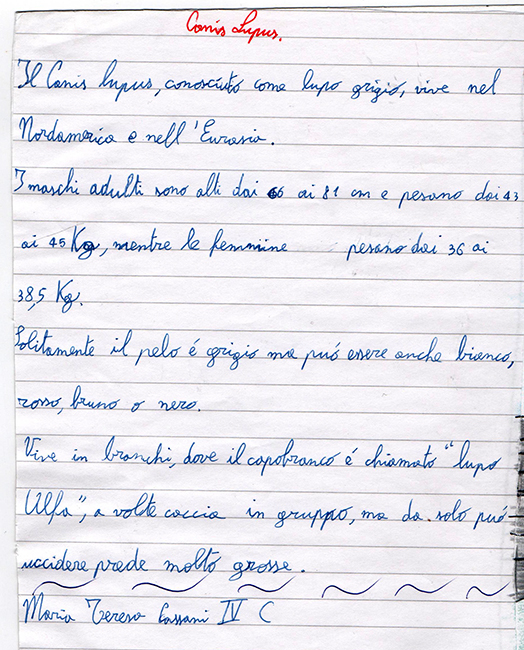 Canis Lupus.
Il Canis lupus, conosciuto come lupo grigio, vive nel
Nordamerica e nell'Eurasia.
I maschi adulti sono alti dai 66 ai 81 cm e pesano dai 43
ai 45 Kg, mentre le femmine pesano dai 36 ai
38,5 Kg.
Solitamente il pelo é grigio ma puó essere anche bianco,
rosso, bruno o nero.
Vive in branchi, dove il capobranco é chiamato "lupo
Alfa", a volte caccia in gruppo, ma da solo puó
uccidere prede molto grosse.
Maria Teresa Cassani IV C